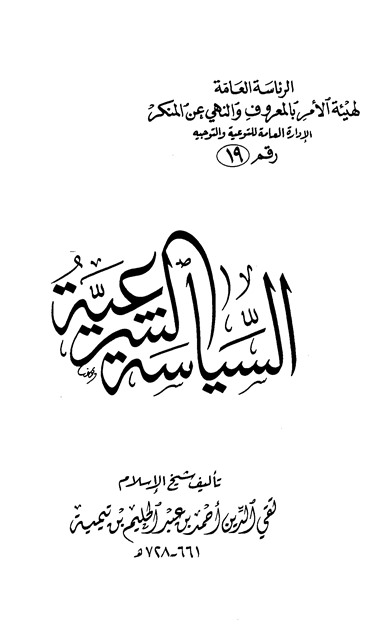 الرئاسة العامة
لهيئة الأمر بالمعروف والنهي عن المنكر
الإدارة العامة للتوعية والتوجيه
رقم ١٩
السياسة الشرعية
تأليف شيخ الإسلام
تقي الدين أحمد بن عبد الحليم بن تيمية
٦٦١-٧٢٨ھ